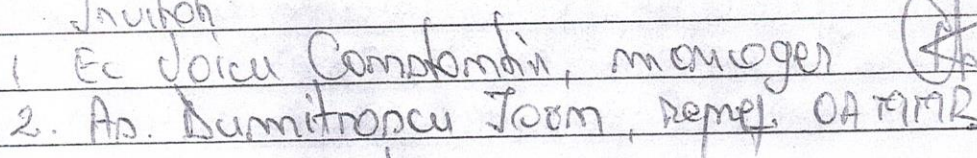 Invitați
1 Ec Voicu Constantin, manager
2. As. Dumitrașcu Ioan, reprez. OAMMR